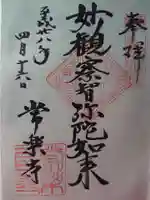 奉拝
妙觀察智弥陀如来
平成廿八年
四月十六日
常楽寺